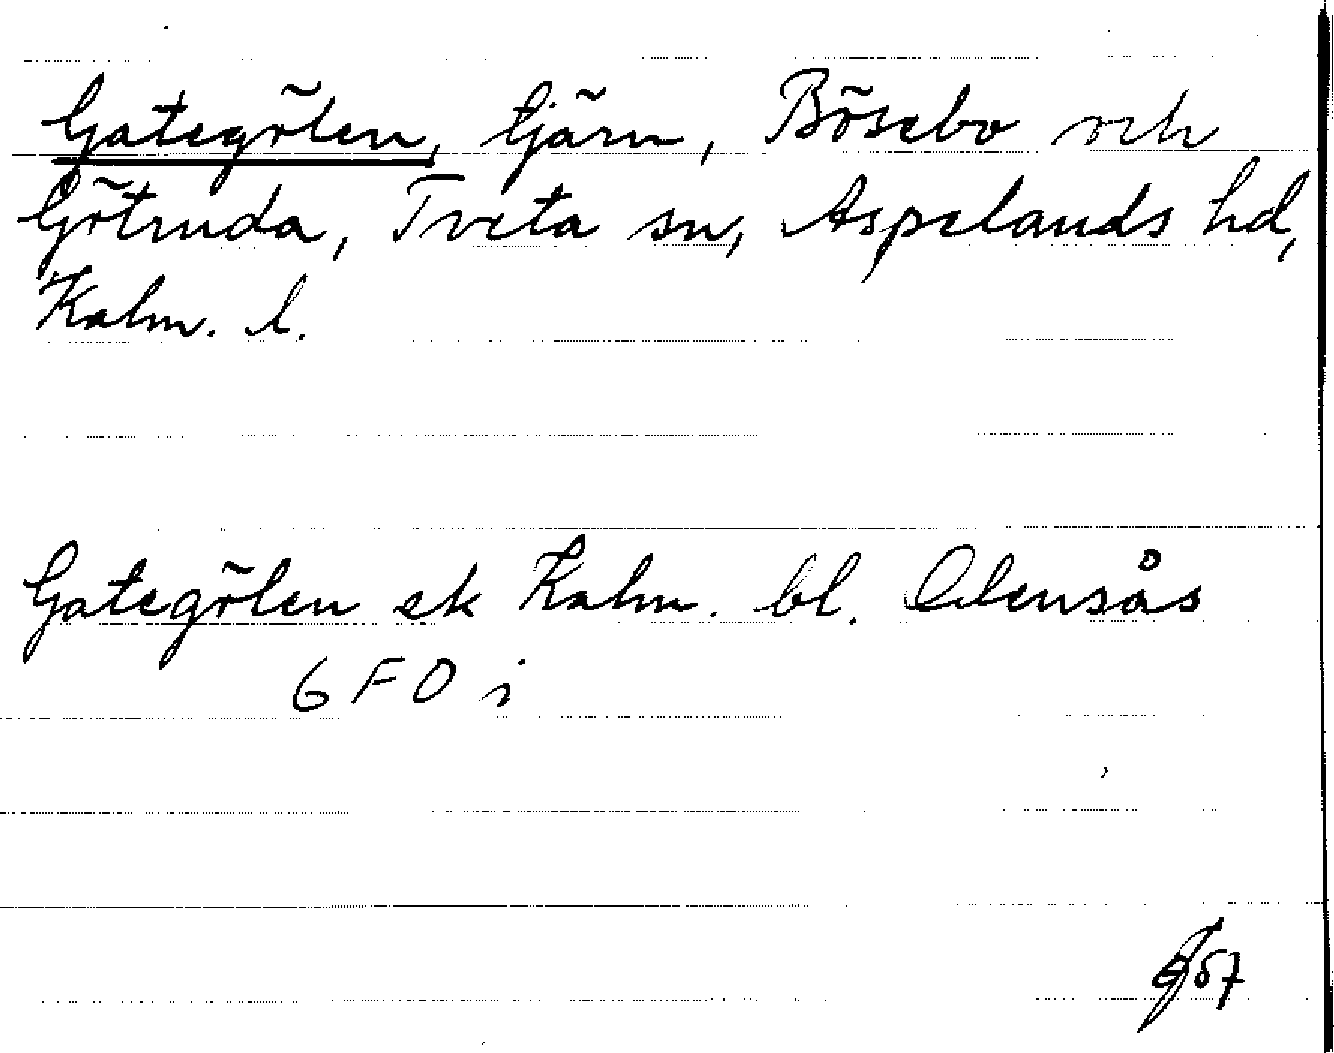 Gategölen, tjärn, Bösebo och
Götruda, Tveta sn, Aspelands hd,
Kalm. l.
Gategölen ek Kalm. bl. Alensås
6 F 0 i
57